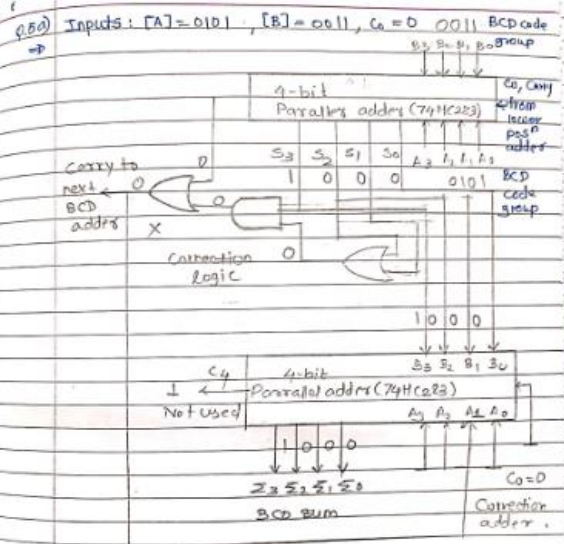 Q.5a) Inputs: [A]=0101, [B]=0011, C₀=0 0011 BCD code
⇒ B₃ B₂ B₁ B₀ group
4-bit
Parallel adder (74HC283)
C₀, Carry
from
lower
posⁿ
adder
S₃ S₂ S₁ S₀ A₃ A₂ A₁ A₀
1 0 0 0 0101 BCD
code
group
Carry to
next
BCD
adder
0
0
0
X
Correction 0
logic
1 0 0 0
B₃ B₂ B₁ B₀
C₄ 4-bit
1 Parallel adder (74HC283)
Not used A₃ A₂ A₁ A₀
1 0 0 0
Σ₃ Σ₂ Σ₁ Σ₀ C₀=0
BCD sum Correction
adder.